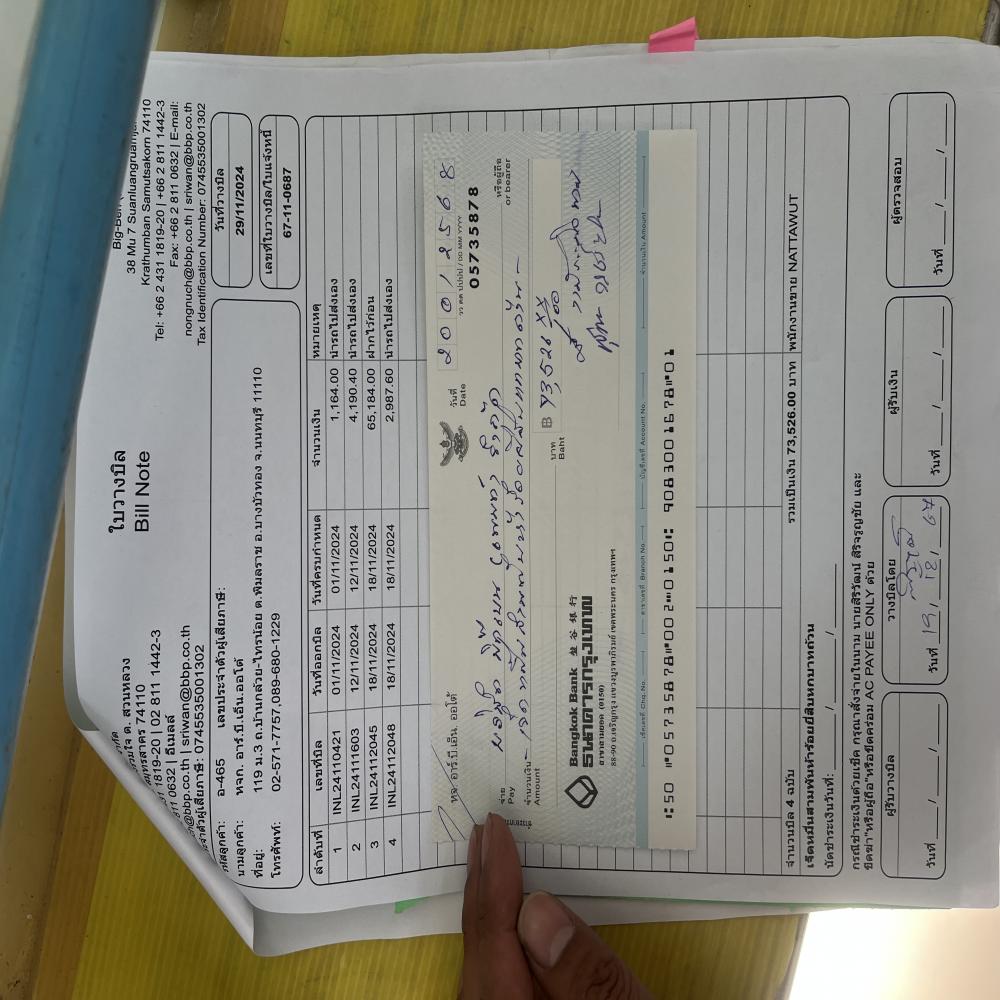 ใบวางบิล
Bill Note
Big-Ben
38 Mu 7 Suanluangruamjai
Krathumban Samutsakorn 74110
Tel: +66 2 431 1819-20 | +66 2 811 1442-3
Fax: +66 2 811 0632 | E-mail:
nongnuch@bbp.co.th | sriwan@bbp.co.th
Tax Identification Number: 0745535001302
ต. สวนหลวง
สมุทรสาคร 74110
1819-20 | 02 811 1442-3
811 0632 | อีเมลล์
@bbp.co.th | sriwan@bbp.co.th
ประจำตัวผู้เสียภาษี: 0745535001302
รหัสลูกค้า: อ-465 เลขประจำตัวผู้เสียภาษี:
นามลูกค้า: หจก. อาร์.บี.เอ็น.ออโต้
ที่อยู่: 119 ม.3 ถ.บ้านกล้วย-ไทรน้อย ต.พิมลราช อ.บางบัวทอง จ.นนทบุรี 11110
โทรศัพท์: 02-571-7757,089-680-1229
วันที่วางบิล
29/11/2024
เลขที่ใบวางบิล/ใบแจ้งหนี้
67-11-0687
ลำดับที่ เลขที่บิล วันที่ออกบิล วันที่ครบกำหนด จำนวนเงิน หมายเหตุ
1 INL24110421 01/11/2024 01/11/2024 1,164.00 นำรถไปส่งเอง
2 INL24111603 12/11/2024 12/11/2024 4,190.40 นำรถไปส่งเอง
3 INL24112045 18/11/2024 18/11/2024 65,184.00 ฝากไว้ก่อน
4 INL24112048 18/11/2024 18/11/2024 2,987.60 นำรถไปส่งเอง
หจ. อาร์.บี.เอ็น. ออโต้
วันที่
Date
20012568
วว ดด ปปปป / DD MM YYYY
05735878
จ่าย
Pay
หรือผู้ถือ
or bearer
จำนวนเงิน
Amount
-เจ็ดหมื่นสามพันห้าร้อยยี่สิบหกบาทถ้วน-
บาท
Baht
฿ 73,526 XX/100
Bangkok Bank 盤谷銀行
ธนาคารกรุงเทพ
สาขาสามยอด (0150)
88-90 ถ.เจริญกรุง แขวงบูรพาภิรมย์ เขตพระนคร กรุงเทพฯ
เช็คเลขที่ Chq. No. สาขาเลขที่ Branch No. บัญชีเลขที่ Account No. จำนวนเงิน Amount
จำนวนบิล 4 ฉบับ รวมเป็นเงิน 73,526.00 บาท พนักงานขาย NATTAWUT
เจ็ดหมื่นสามพันห้าร้อยยี่สิบหกบาทถ้วน
นัดชำระเงินวันที่: ____/____/____
กรณีชำระเงินด้วยเช็ค กรุณาสั่งจ่ายในนาม นายสิริวัฒน์ สิริจรูญชัย และ
ขีดฆ่า"หรือผู้ถือ"หรือขีดคร่อม AC PAYEE ONLY ด้วย
ผู้รับวางบิล วางบิลโดย ผู้รับเงิน ผู้ตรวจสอบ
วันที่ ____/____/____ วันที่ 19/12/67 วันที่ ____/____/____ วันที่ ____/____/____